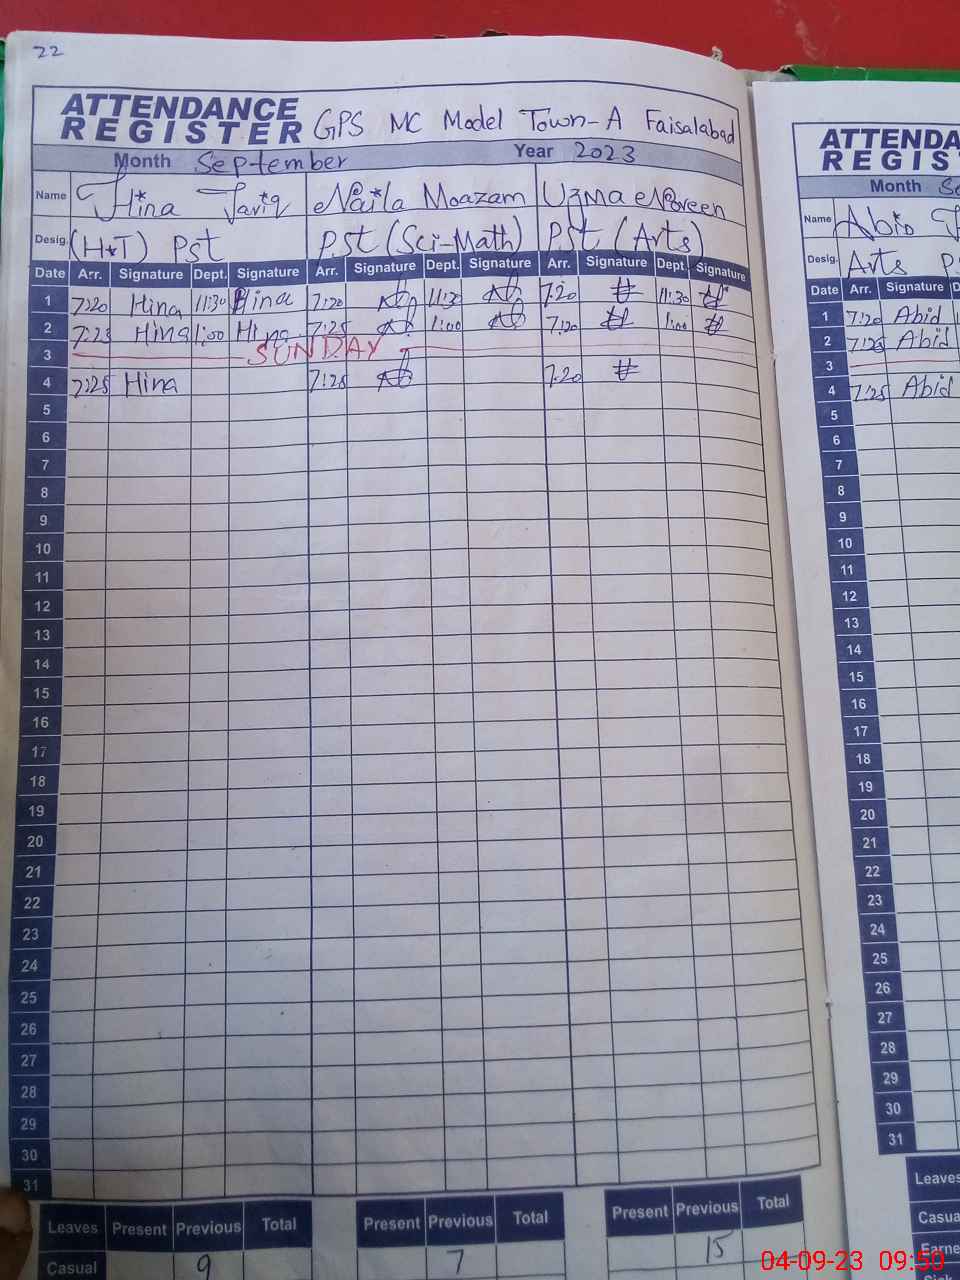 22
ATTENDANCE
REGISTER GPS MC Model Town-A Faisalabad
Month September Year 2023
Name Hina Tariq Naila Moazam Uzma Noreen
Desig. (H*T) Pst P.st (Sci-Math) P.St (Arts)
Date Arr. Signature Dept. Signature Arr. Signature Dept. Signature Arr. Signature Dept. Signature
1 7:20 Hina 11:30 Hina 7:20 11:30 7:20 11:30
2 7:25 Hina 1:00 Hina 7:25 1:00 7:20 1:00
3 SUNDAY
4 7:25 Hina 7:25 7:20
5
6
7
8
9
10
11
12
13
14
15
16
17
18
19
20
21
22
23
24
25
26
27
28
29
30
31
Leaves Present Previous Total Present Previous Total Present Previous Total
Casual 9 7 15
ATTENDA
REGIS
Month
Name Abid
Desig. Arts
Date Arr. Signature
1 7:20 Abid
2 7:25 Abid
3
4 7:25 Abid
5
6
7
8
9
10
11
12
13
14
15
16
17
18
19
20
21
22
23
24
25
26
27
28
29
30
31
Leaves
Casua
Earne
04-09-23 09:50